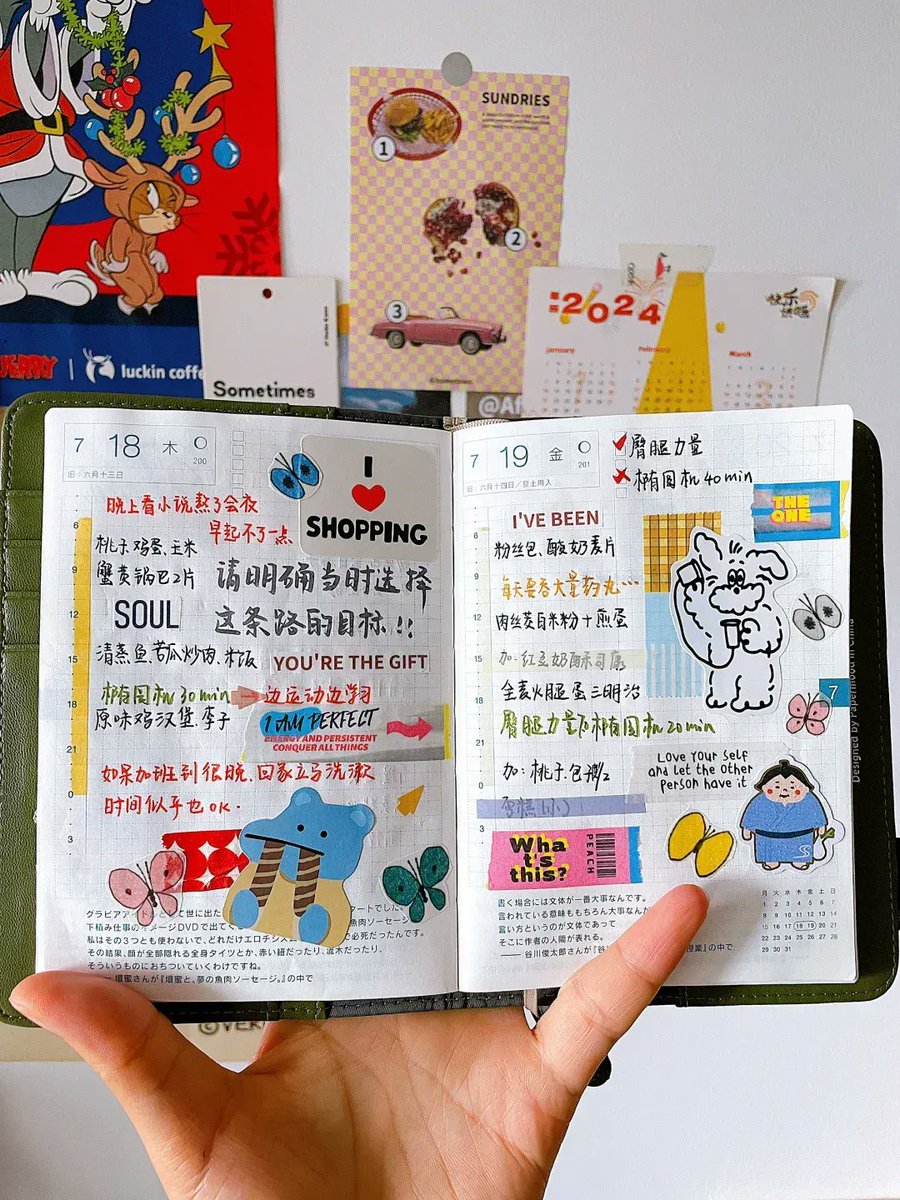 SUNDRIES
1
2
3
luckin coffee
Sometimes
:2024
January
February
March
快乐
7
18
木
200
旧：六月十三日
晚上看小说熬了会夜
早起不了一点
I
SHOPPING
6
9
12
15
18
21
0
3
桃子、鸡蛋、玉米
蟹黄锅巴2片
请明确当时选择
这条路的目标!!
SOUL
清蒸鱼、苦瓜炒肉、米饭
YOU'RE THE GIFT
椭圆机30min
边运动边学习
原味鸡汉堡、李子
I AM PERFECT
ENERGY AND PERSISTENT
CONQUER ALL THINGS
如果加班到很晚，回家立马洗漱
时间似乎也OK.
下積み仕事のイメージDVDで
私はその3つとも使わないで、どれだけエロチシズム
その結果、顔が全部隠れる全身タイツとか、赤い紐だったり、流木だったり、
そういうものにおちついていくわけですね。
壇蜜さんが『壇蜜と、夢の魚肉ソーセージ。』の中で
7
19
金
201
旧：六月十四日／土用入
臀腿力量
椭圆机40min
THE
ONE
I'VE BEEN
6
9
12
15
18
21
0
3
粉丝包、酸奶麦片
每天要吞大量药丸…
肉丝茭白米粉+煎蛋
加：红豆奶酥司康
全麦火腿蛋三明治
7
臀腿力量&椭圆机20min
LOVE YOUR SELF
and let the other
person have it
加：桃子、包
蛋糕(小)
Wha
t's
this?
PEACH
Designed by Paper
書く場合には文体が一番大事なんです。
言われている意味ももちろん大事なんだ
言い方というのが文体であって
そこに作者の人間が表れる。
谷川俊太郎さんが『谷
授業』の中で
月 火 水 木 金 土 日
1 2 3 4 5 6 7
8 9 10 11 12 13 14
15 16 17 18 19 20 21
22 23 24 25 26 27 28
29 30 31